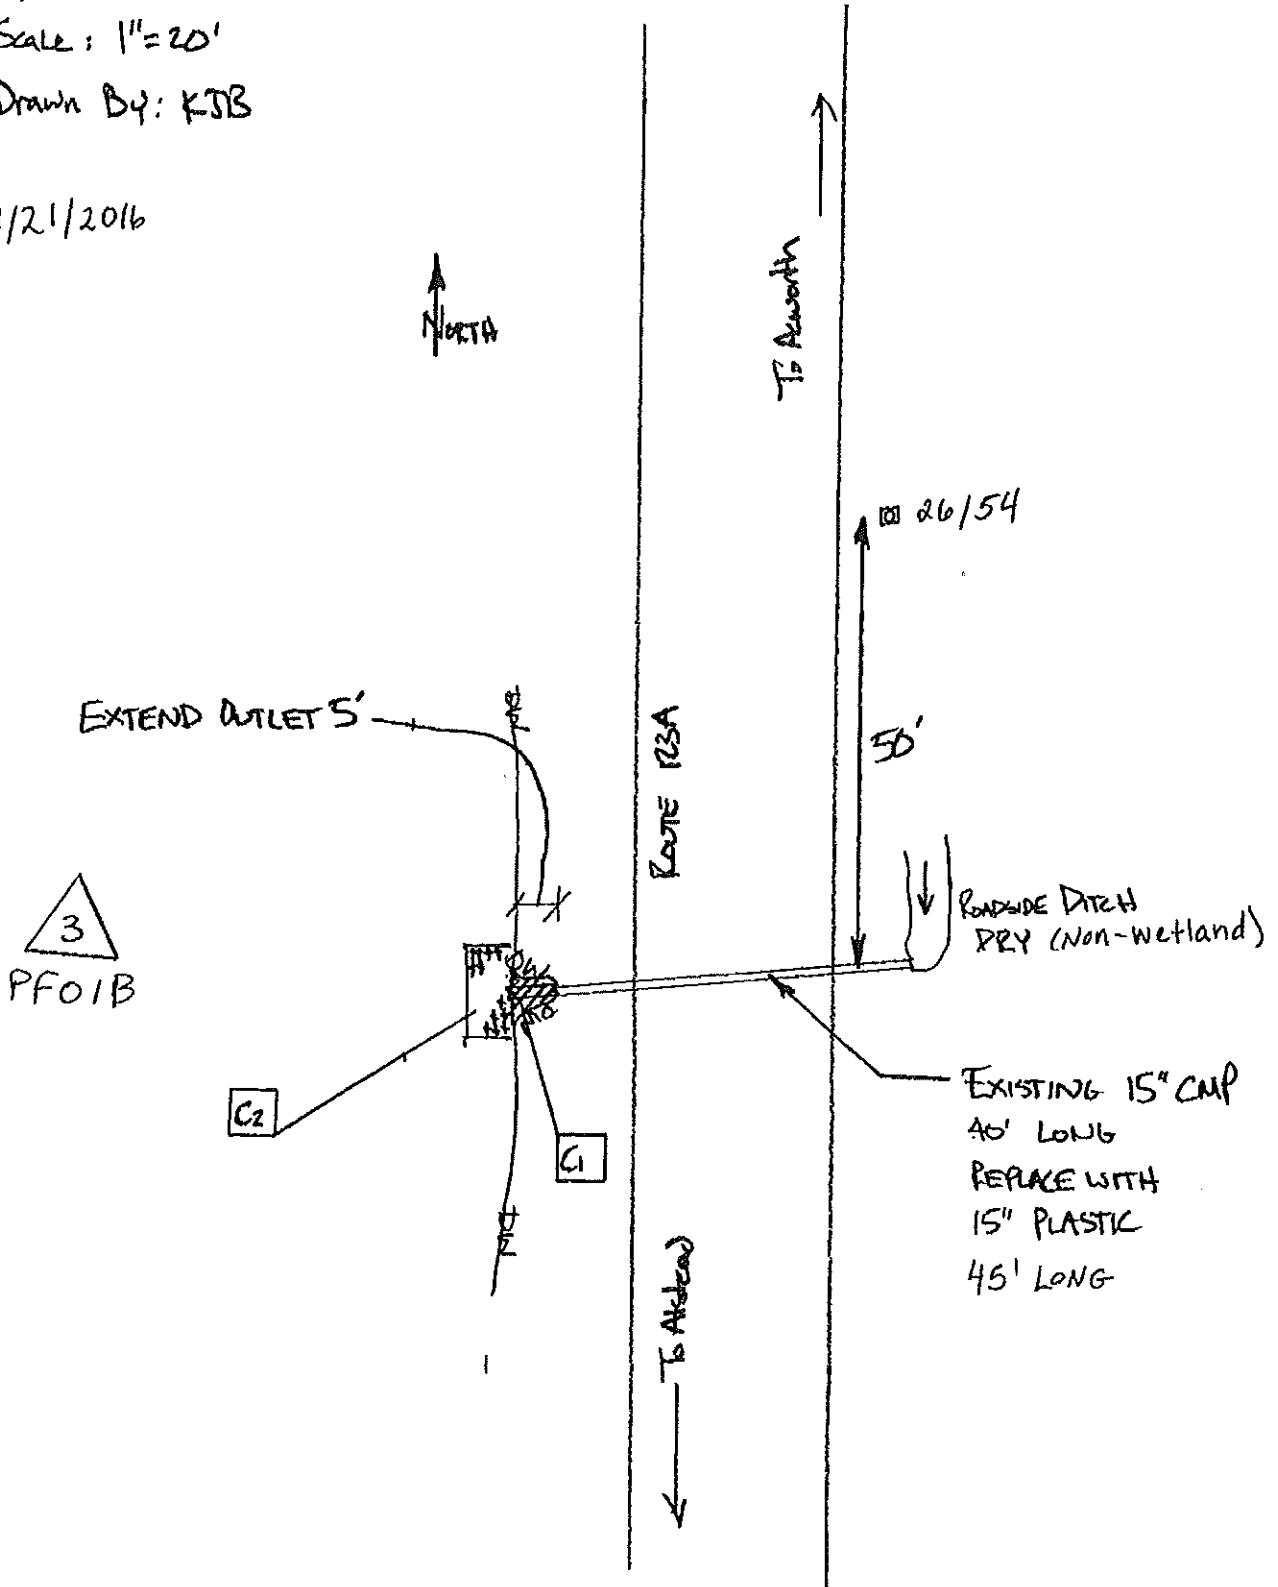 Scale: 1"=20'
Drawn By: KJB
/21/2016
NORTH
To Acworth
26/54
EXTEND OUTLET 5'
50'
ROUTE 123A
3
PFO1B
ROADSIDE DITCH
DRY (Non-wetland)
C2
C1
EXISTING 15" CMP
40' LONG
REPLACE WITH
15" PLASTIC
45' LONG
To Alstead